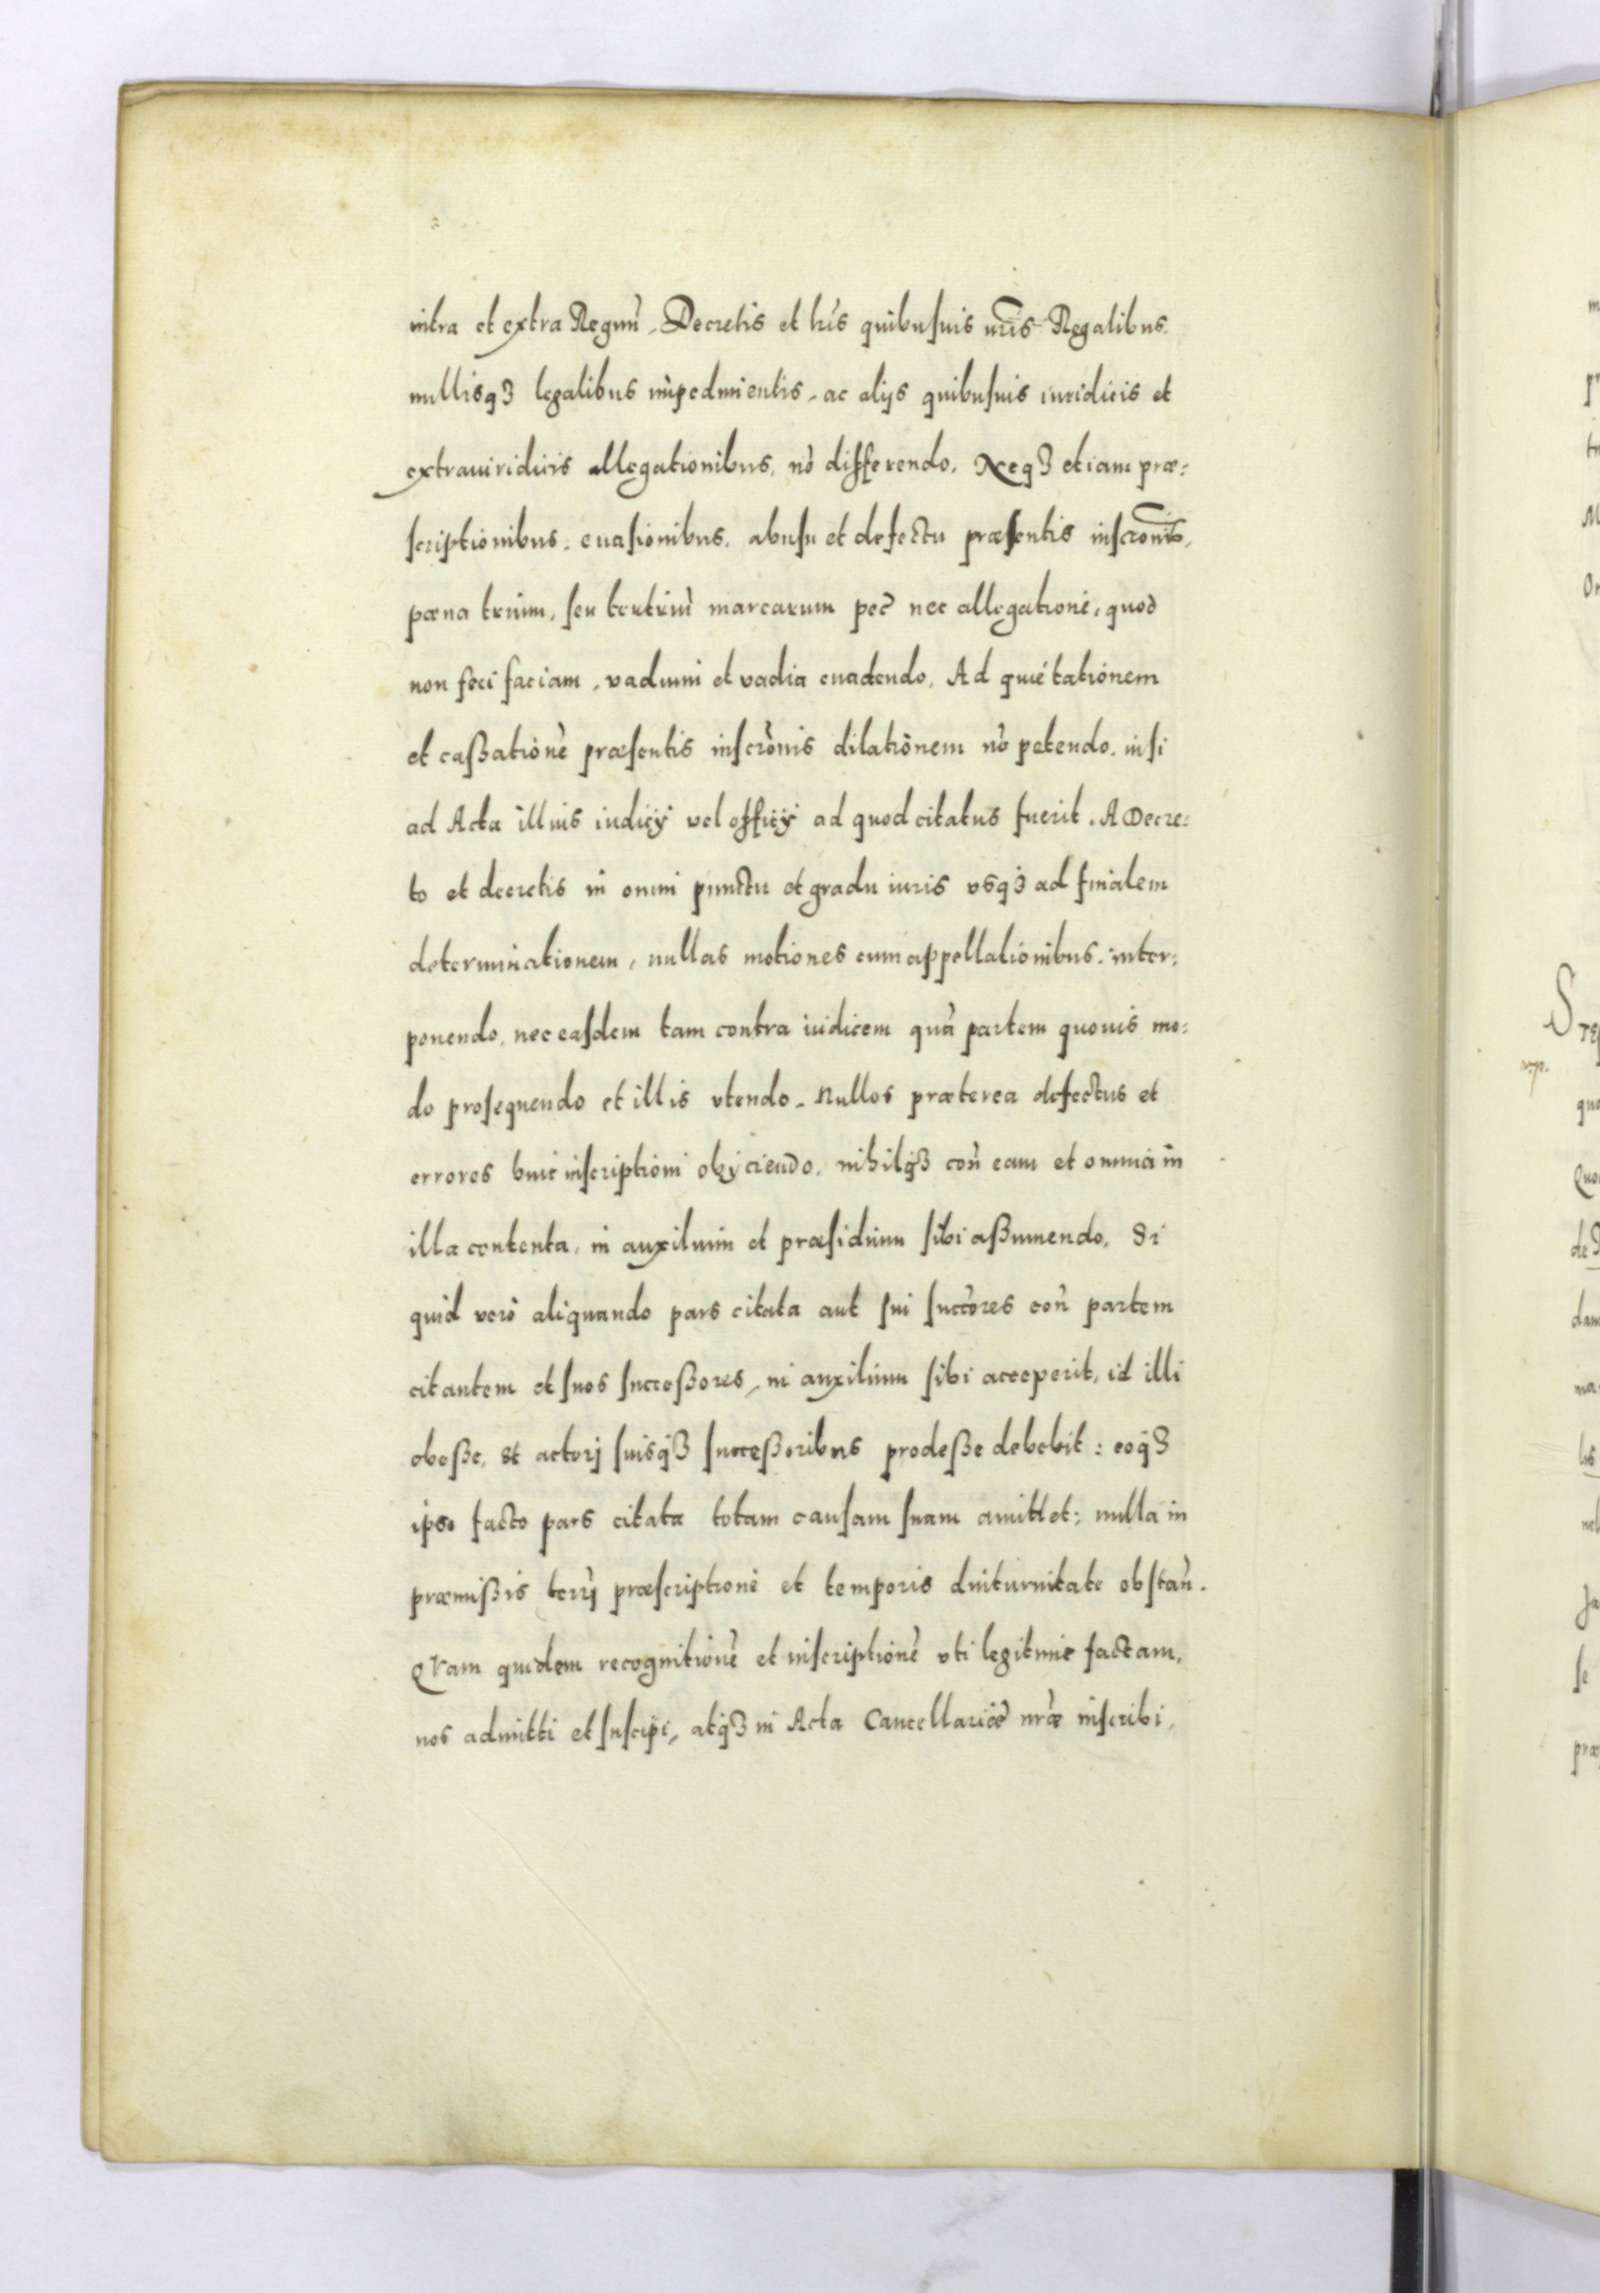 intra et extra Regnũ, Decretis et lr̃is quibusuis nr̃is Regalibus.
nullisqꝫ legalibus impedimentis, ac alijs quibusuis iuridicis et
extraiuridicis allegationibus, nõ differendo. Neqꝫ etiam præ:
scriptionibus, euasionibus, abusu et defectu præsentis inscrõnis,
pæna trium, seu tertriũ marcarum pec̃ nec allegatione, quod
non feci faciam, vadium et vadia euadendo. Ad quietationem
et caßationẽ præsentis inscrõnis dilationem nõ petendo. nisi
ad Acta illius iudicij vel officij ad quod citatus fuerit. A Decre:
to et decretis in omni punctu et gradu iuris vsqꝫ ad finalem
determinationem, nullas motiones cum appellationibus. inter:
ponendo, nec easdem tam contra iudicem quã partem quouis mo:
do prosequendo et illis vtendo. Nullos præterea defectus et
errores huic inscriptioni obijciendo, nihilqꝫ coñ eam et omnia in
illa contenta, in auxilium et præsidium sibi aßumendo. Si
quid vero aliquando pars citata aut sui succõres coñ partem
citantem et suos succeßores, in auxilium sibi acceperit, id illi
obeße, et actorj suisqꝫ succeßoribus prodeße debebit: eoqꝫ
ipso facto pars citata totam causam suam amittet; nulla in
præmißis terrj præscriptione et temporis diuturnitate obstañ.
Qvam quidem recognitionẽ et inscriptionẽ vti legitime factam,
nos admitti et suscipi, atqꝫ in Acta Cancellariæ nr̃æ inscribi,